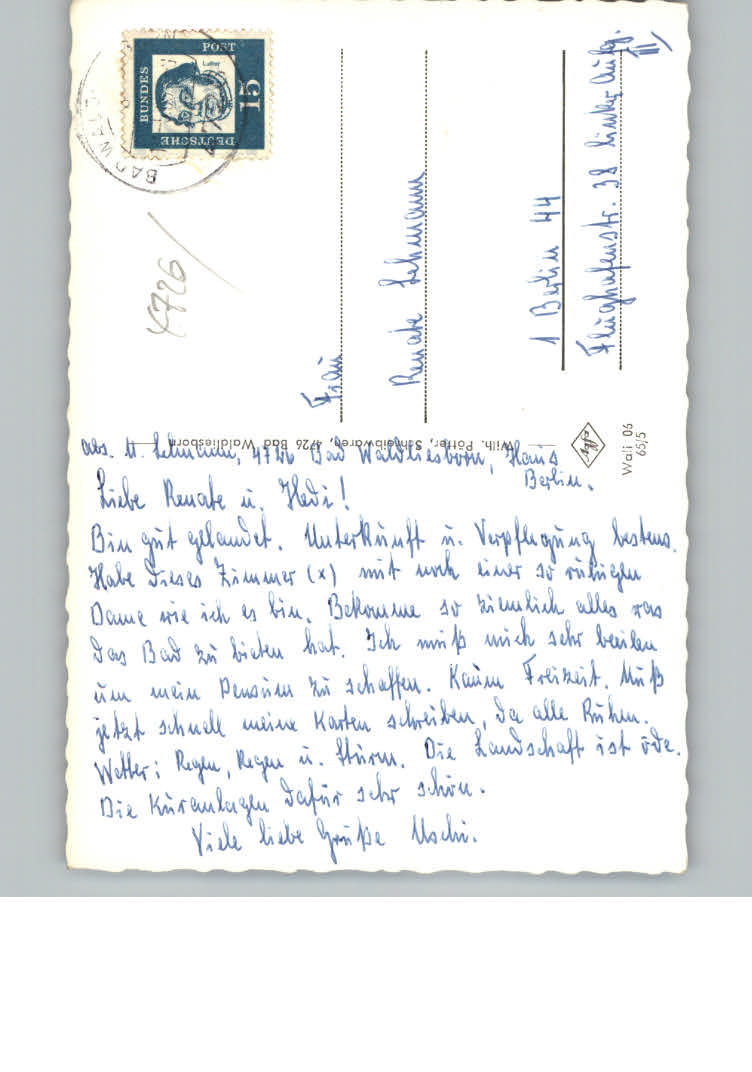 DEUTSCHE
BUNDES
POST
15
Luther
BAD WALD
4726
Frau
Renate Lehmann
1 Berlin 44
Flughafenstr. 38 linker Aufg.
III
Wilh. Pötter, Schreibwaren, 4726 Bad Waldliesborn
Agfa
Wali 06
65/5
abs. U. Lehmann, 4726 Bad Waldliesborn, Haus
Berlin.
Liebe Renate u. Hedi!
Bin gut gelandet. Unterkunft u. Verpflegung bestens.
Habe dieses Zimmer (x) mit noch einer so ruhigen
Dame wie ich es bin. Bekomme so ziemlich alles was
das Bad zu bieten hat. Ich muß mich sehr beeilen
um mein Pensum zu schaffen. Kaum Freizeit. Muß
jetzt schnell meine Karten schreiben, da alle Ruhen.
Wetter: Regen, Regen u. Sturm. Die Landschaft ist öde.
Die Kuranlagen dafür sehr schön.
Viele liebe Grüße Uschi.